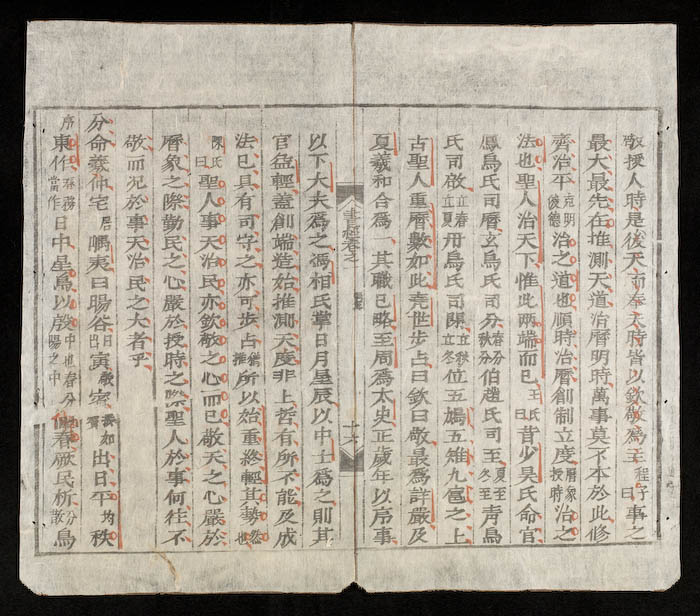 敬授人時是後天而奉天時皆以欽敬爲主程子曰事之
最大最先在推測天道治曆明時萬事莫不本於此修
齊治平克明後德治之道也順時治曆創制立度曆象授時治之
法也聖人治天下惟此兩端而已王氏曰昔少昊氏命官
鳳鳥氏司曆玄鳥氏司分春分秋分伯趙氏司至夏至冬至青鳥
氏司啟立春立夏丹鳥氏司閉立秋立冬位五鳩五雉九扈之上
古聖人重曆數如此堯世步占曰欽曰敬最爲詳嚴及
夏羲和合爲一其職已略至周爲太史正歲年以序事
書經卷之一
十六
以下大夫爲之馮相氏掌日月星辰以中士爲之則其
官益輕蓋創端造始推測天度非上哲有所不能及成
法已具有司守之亦可步占推所以始重終輕其勢然也
陳氏曰聖人事天治民亦欽敬之心而已敬天之心嚴於
曆象之際勤民之心嚴於授時之際聖人於事何往不
敬而况於事天治民之大者乎
分命羲仲宅居嵎夷曰暘谷寅敬賓出日平均秩
序東作春務當作日中星鳥以殷仲春厥民析分散鳥